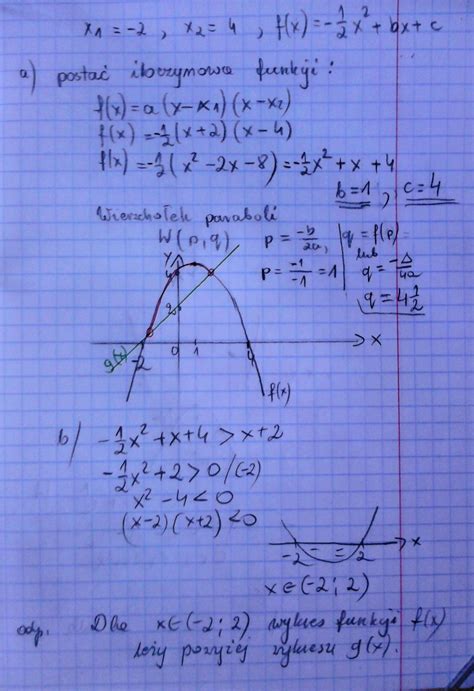 x₁ = -2 , x₂ = 4 , f(x) = -1/2 x² + bx + c
a) postać iloczynowa funkcji :
f(x) = a (x - x₁) (x - x₂)
f(x) = -1/2 (x + 2) (x - 4)
f(x) = -1/2 ( x² - 2x - 8) = -1/2 x² + x + 4
b = 1 , c = 4
Wierzchołek paraboli
W( p, q)
p = -b/2a,
p = -1/-1 = 1
q = f(p) =
lub
q = -Δ/4a
q = 4 1/2
y
4
2
g(x)
-2
0
1
4
x
f(x)
b/
-1/2 x² + x + 4 > x + 2
-1/2 x² + 2 > 0 / (-2)
x² - 4 < 0
(x-2) (x+2) < 0
-2 - = 2 x
x ∈ (-2 ; 2)
odp. Dla x ∈ (-2 ; 2) wykres funkcji f(x)
leży powyżej wykresu g(x).